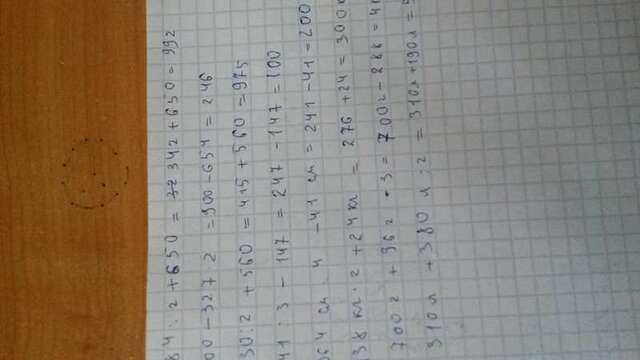 84 : 2 + 650 = 342 + 650 = 992
00 - 327 2 = 900 - 654 = 246
30 : 2 + 560 = 415 + 560 = 975
41 : 3 - 147 = 247 - 147 = 100
64 см : 4 - 41 см = 241 - 41 = 200
38 кг · 2 + 24 кг = 276 + 24 = 300к
700 г + 96 г · 3 = 700 г - 288 = 41
310 л + 380 л : 2 = 310 л + 190 л = 5